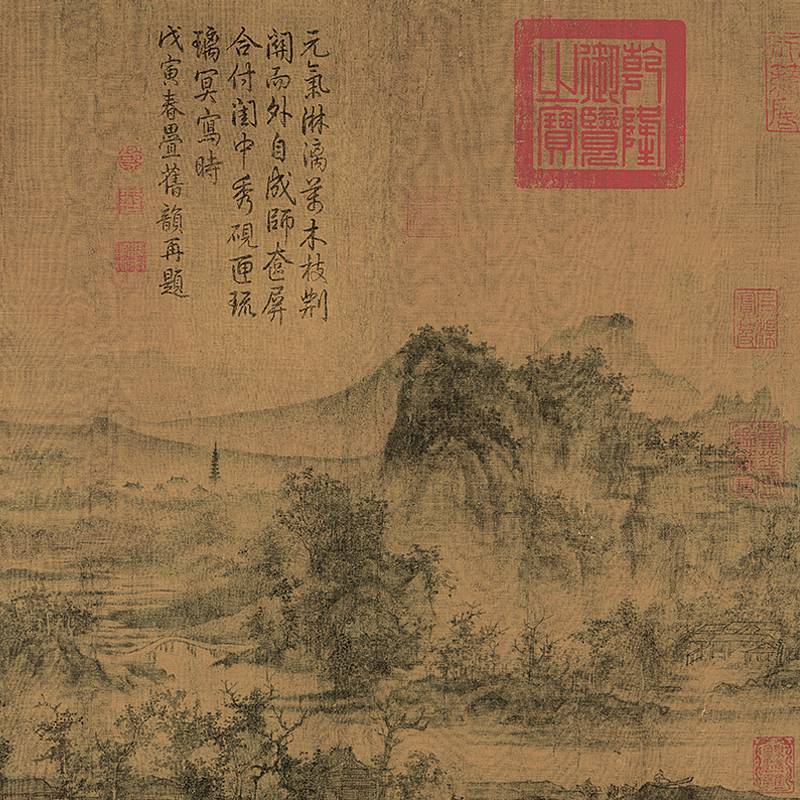 乾隆
御覽
之寶
元氣淋漓萬木枝荆
關而外自成師奩屏
合付閨中秀硯匣琉
璃冥寫時
戊寅春疊舊韻再題
乾
隆